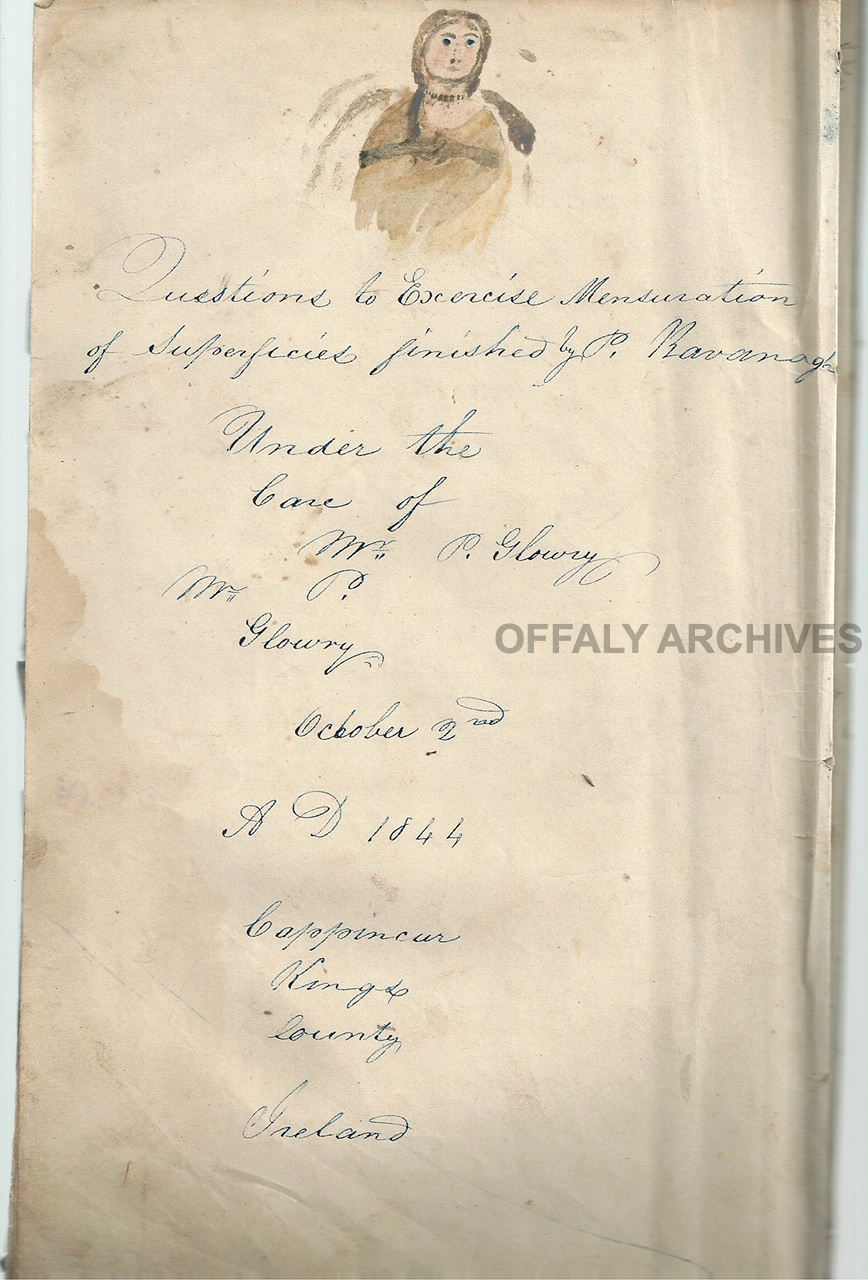 Questions to Exercise Mensuration
of Superficies finished by P. Kavanagh
Under the
Care of
Mr. P. Glowry
Mr. P.
Glowry
OFFALY ARCHIVES
October 2nd
A D 1844
Cappincur
Kings
County
Ireland